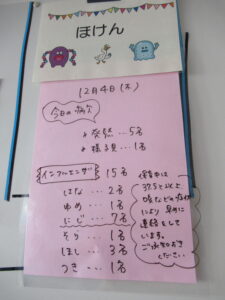 ほけん
12月4日(木)
今日の病欠
発熱…5名
様子見…1名
インフルエンザ 15名
はな…2名
ゆめ…1名
にじ…7名
そら…1名
ほし…3名
つき…1名
保育中に
37.5℃以上
咳などの症状
により早めに
連絡をして
います。
ご承知おき
ください